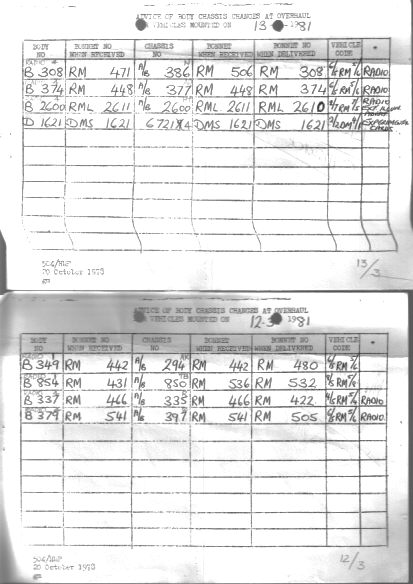 ADVICE OF BODY CHASSIS CHANGES AT OVERHAUL
VEHICLES MOUNTED ON 13 1981
BODY NO BONNET NO WHEN RECEIVED CHASSIS NO BONNET WHEN RECEIVED BONNET NO WHEN DELIVERED VEHICLE CODE *
B 308 RM 471 A/B 386 RM 506 RM 308 6/5 RM 5/6 RADIO
B 374 RM 448 A/B 377 RM 448 RM 374 6/5 RM 5/6 RADIO
B 2600 RML 2611 A/B 2600 RML 2611 RML 2610 RM RADIO
D 1621 DMS 1621 DMS 1621 DMS 1621 EXPERIMENTAL
20 October 1978
13/3
ADVICE OF BODY CHASSIS CHANGES AT OVERHAUL
VEHICLES MOUNTED ON 12-3 1981
BODY NO BONNET NO WHEN RECEIVED CHASSIS NO BONNET WHEN RECEIVED BONNET NO WHEN DELIVERED VEHICLE CODE *
B 349 RM 442 A/B 294 RM 442 RM 480 6/5 RM 5/6
B 854 RM 431 A/B 850 RM 536 RM 532 RM 5/6
B 337 RM 466 A/B 335 RM 466 RM 422 6/5 RM 5/6 RADIO
B 379 RM 541 A/B 397 RM 541 RM 505 6/5 RM 5/6 RADIO
20 October 1978
12/3